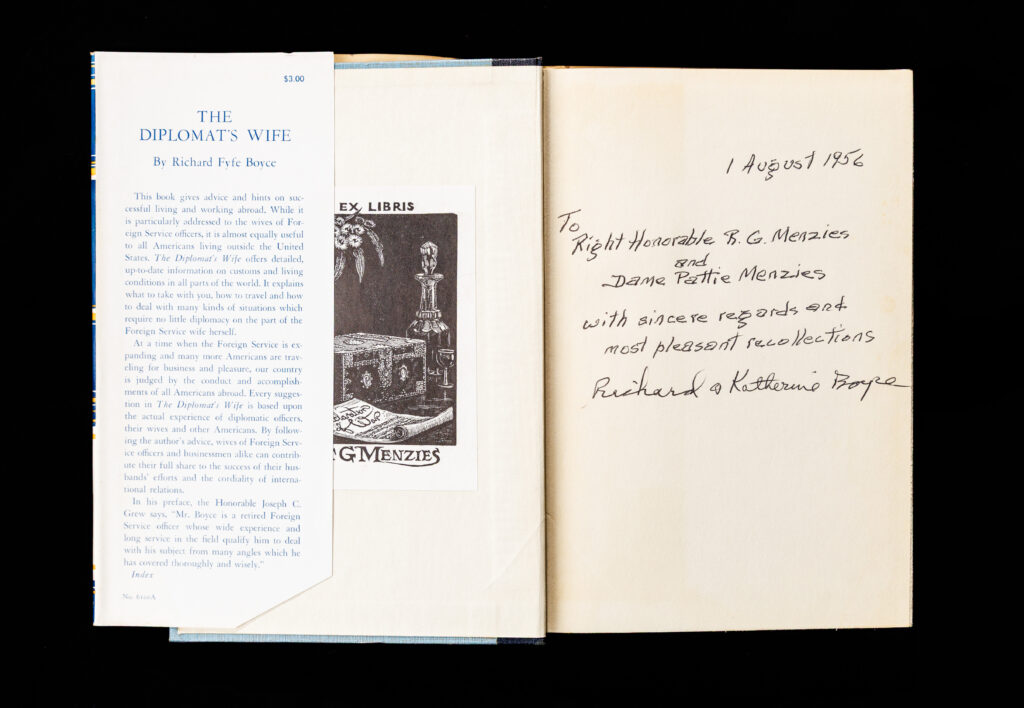 $3.00
THE
DIPLOMAT'S WIFE
By Richard Fyfe Boyce
This book gives advice and hints on suc-
cessful living and working abroad. While it
is particularly addressed to the wives of For-
eign Service officers, it is almost equally useful
to all Americans living outside the United
States. The Diplomat's Wife offers detailed,
up-to-date information on customs and living
conditions in all parts of the world. It explains
what to take with you, how to travel and how
to deal with many kinds of situations which
require no little diplomacy on the part of the
Foreign Service wife herself.
At a time when the Foreign Service is ex-
panding and many more Americans are trav-
eling for business and pleasure, our country
is judged by the conduct and accomplish-
ments of all Americans abroad. Every sugges-
tion in The Diplomat's Wife is based upon
the actual experience of diplomatic officers,
their wives and other Americans. By follow-
ing the author's advice, wives of Foreign Serv-
ice officers and businessmen alike can contrib-
ute their full share to the success of their hus-
bands' efforts and the cordiality of interna-
tional relations.
In his preface, the Honorable Joseph C.
Grew says, "Mr. Boyce is a retired Foreign
Service officer whose wide experience and
long service in the field qualify him to deal
with his subject from many angles which he
has covered thoroughly and wisely."
Index
EX LIBRIS
G MENZIES
1 August 1956
To
Right Honorable R. G. Menzies
and
Dame Pattie Menzies
with sincere regards and
most pleasant recollections
Richard & Katherine Boyce